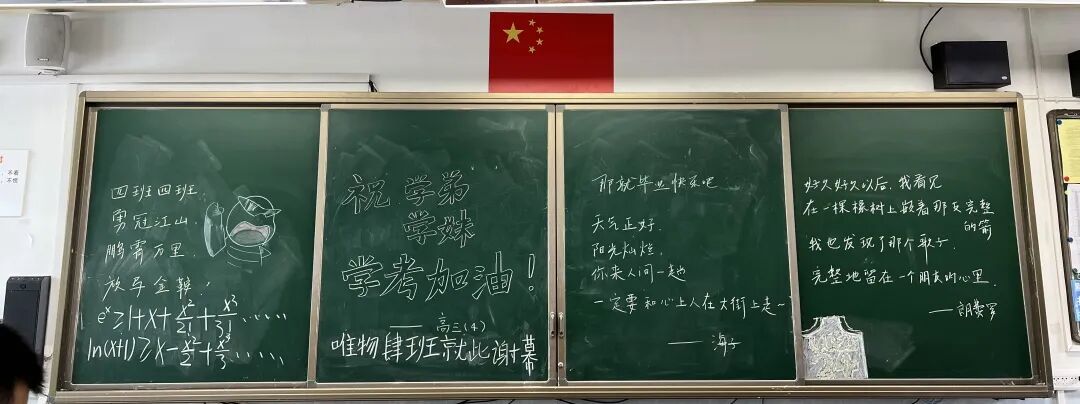 四班四班,
勇冠江山,
鹏霄万里,
放马金鞍!
eˣ≥1+x+x²/2!+x³/3!......
ln(x+1)≥x-x²/2+x³/3......
祝 学弟
学妹
学考加油!
——高三(4)
唯物肆班就此谢幕
那就毕业快乐吧
天气正好,
阳光灿烂,
你来人间一趟
一定要和心上人在大街上走~
——海子
好久好久以后,我看见
在一棵橡树上嵌着那支完整
的箭
我也发现了那个歌子,
完整地留在一个朋友的心里.
——朗费罗